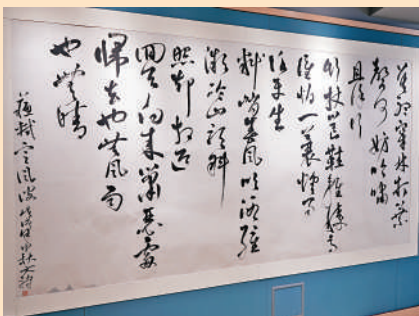 莫聽穿林打葉
聲何妨吟嘯
且徐行
竹杖芒鞋輕勝馬
誰怕一蓑煙雨
任平生
料峭春風吹酒醒
微冷山頭斜
照却相迎
回首向來蕭瑟處
歸去也無風雨
也無晴
蘇軾定風波